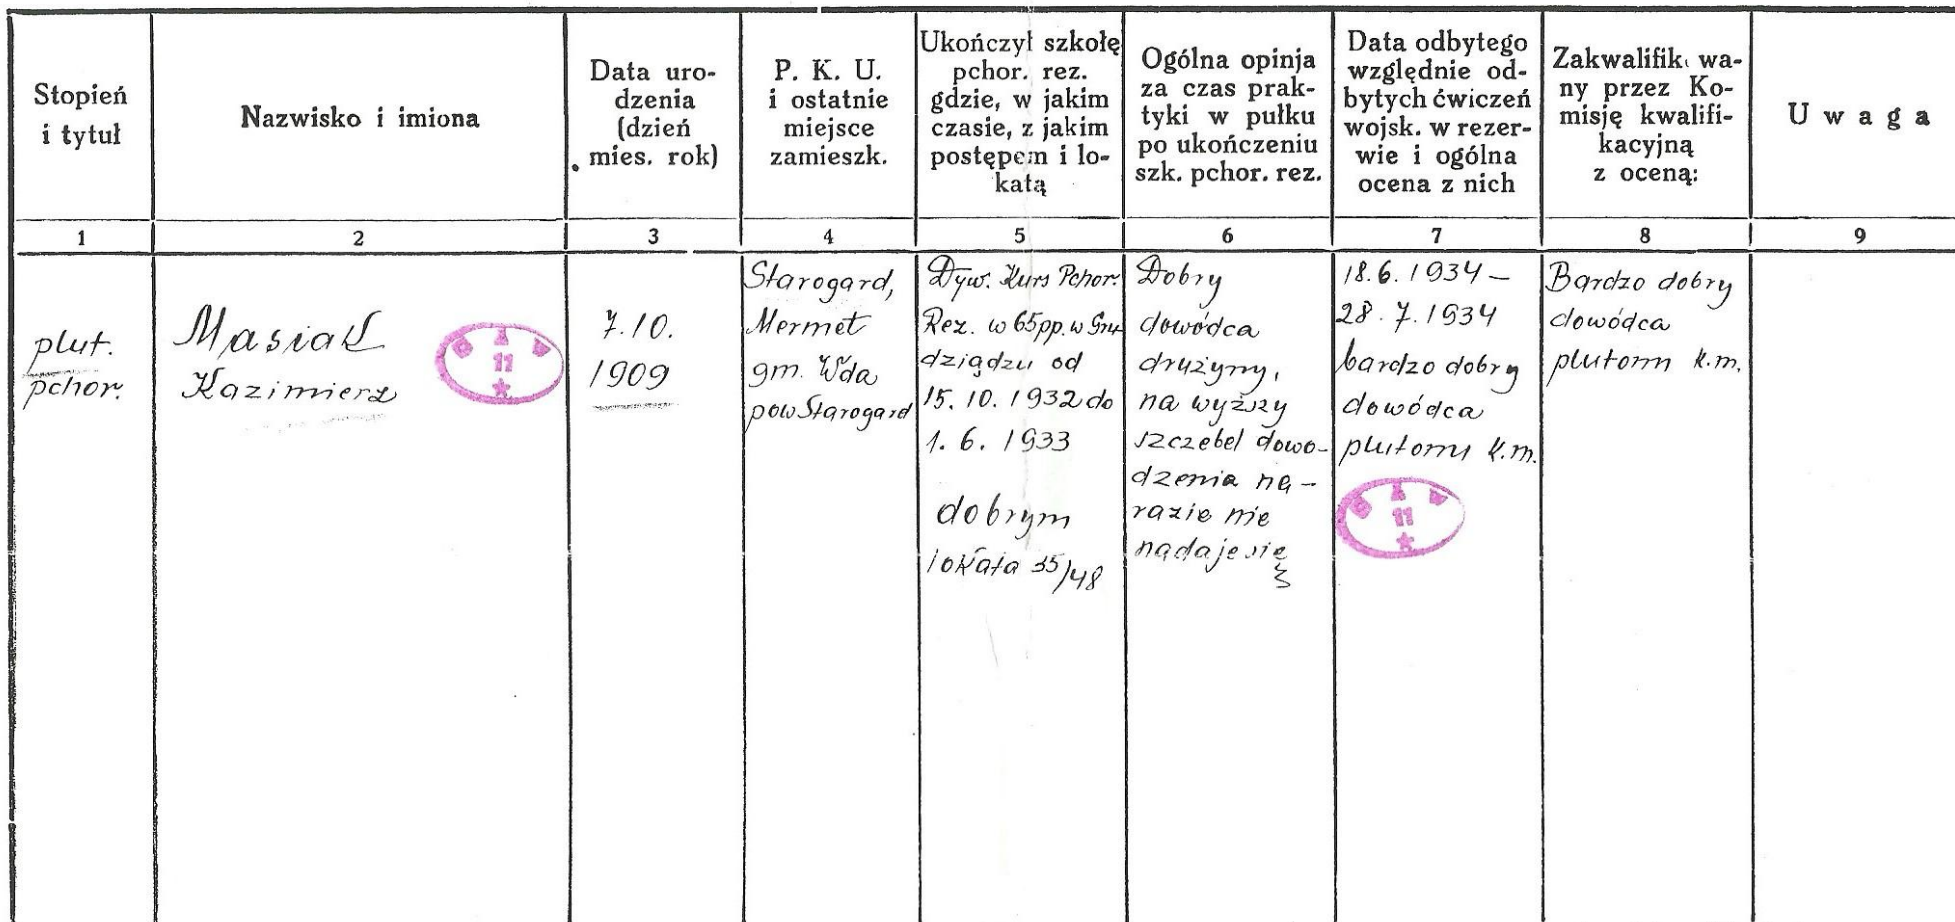 Stopień
i tytuł
Nazwisko i imiona
Data uro-
dzenia
(dzień
mies. rok)
P. K. U.
i ostatnie
miejsce
zamieszk.
Ukończył szkołę
pchor. rez.
gdzie, w jakim
czasie, z jakim
postępem i lo-
katą
Ogólna opinja
za czas prak-
tyki w pułku
po ukończeniu
szk. pchor. rez.
Data odbytego
względnie od-
bytych ćwiczeń
wojsk. w rezer-
wie i ogólna
ocena z nich
Zakwalifik wa-
ny przez Ko-
misję kwalifi-
kacyjną
z oceną:
U w a g a
1
2
3
4
5
6
7
8
9
plut.
pchor.
Masiak
Kazimierz
B A W
11
7.10.
1909
Starogard,
Mermet
gm. Wda
pow Starogard
Dyw. Kurs Pchor.
Rez. w 65pp. w Gru
dziądzu od
15. 10. 1932 do
1. 6. 1933
dobrym
lokata 35/48
Dobry
dowódca
drużyny,
na wyższy
szczebel dowo-
dzenia na-
razie nie
nadaje się
18.6.1934 –
28.7.1934
bardzo dobry
dowódca
plutonu k.m.
B A W
11
Bardzo dobry
dowódca
plutonu k.m.